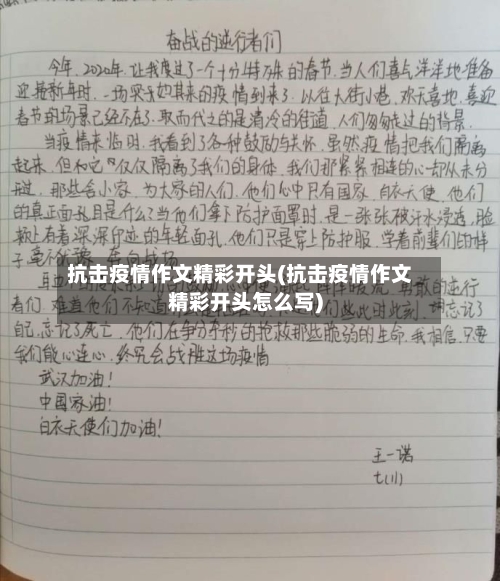 奋战的逆行者们
今年,2020年,让我度过了一个十分特殊的春节,当人们喜气洋洋地准备
迎接新年时,一场突如其来的疫情到来了,以往大街小巷,欢天喜地,喜迎
春节的场景已经不在了,取而代之的是清冷的街道,人们匆匆走过的背景.
当疫情来临时,我看到了各种鼓励与关怀,虽然疫情把我们隔离
起来,但和它"仅仅隔离了我们的身体,我们那紧紧相连的心却从未分
开过,那些舍小家,为大家的人们,他们心中只有国家,白衣天使,他们
的真正面孔目是什么?当他们拿下防护面罩时,是一张张被汗水浸透,脸
颊上有着深深印迹的年轻面孔,他们只是穿上防护服,学着前辈们的样
子毫不犹豫,走向战场.
抗击疫情作文精彩开头(抗击疫情作文
精彩开头怎么写)
勇敢的逆行
者们,难道他们不知道 们些此时此刻, 忘记了
自己,忘记了死亡,他们在争分夺秒的抢救那些脆弱的生命,我相信,只要
我们能心连心,终究会战胜这场疫情
武汉加油!
中国家油!
白衣天使们加油!
王一诺
七(1)